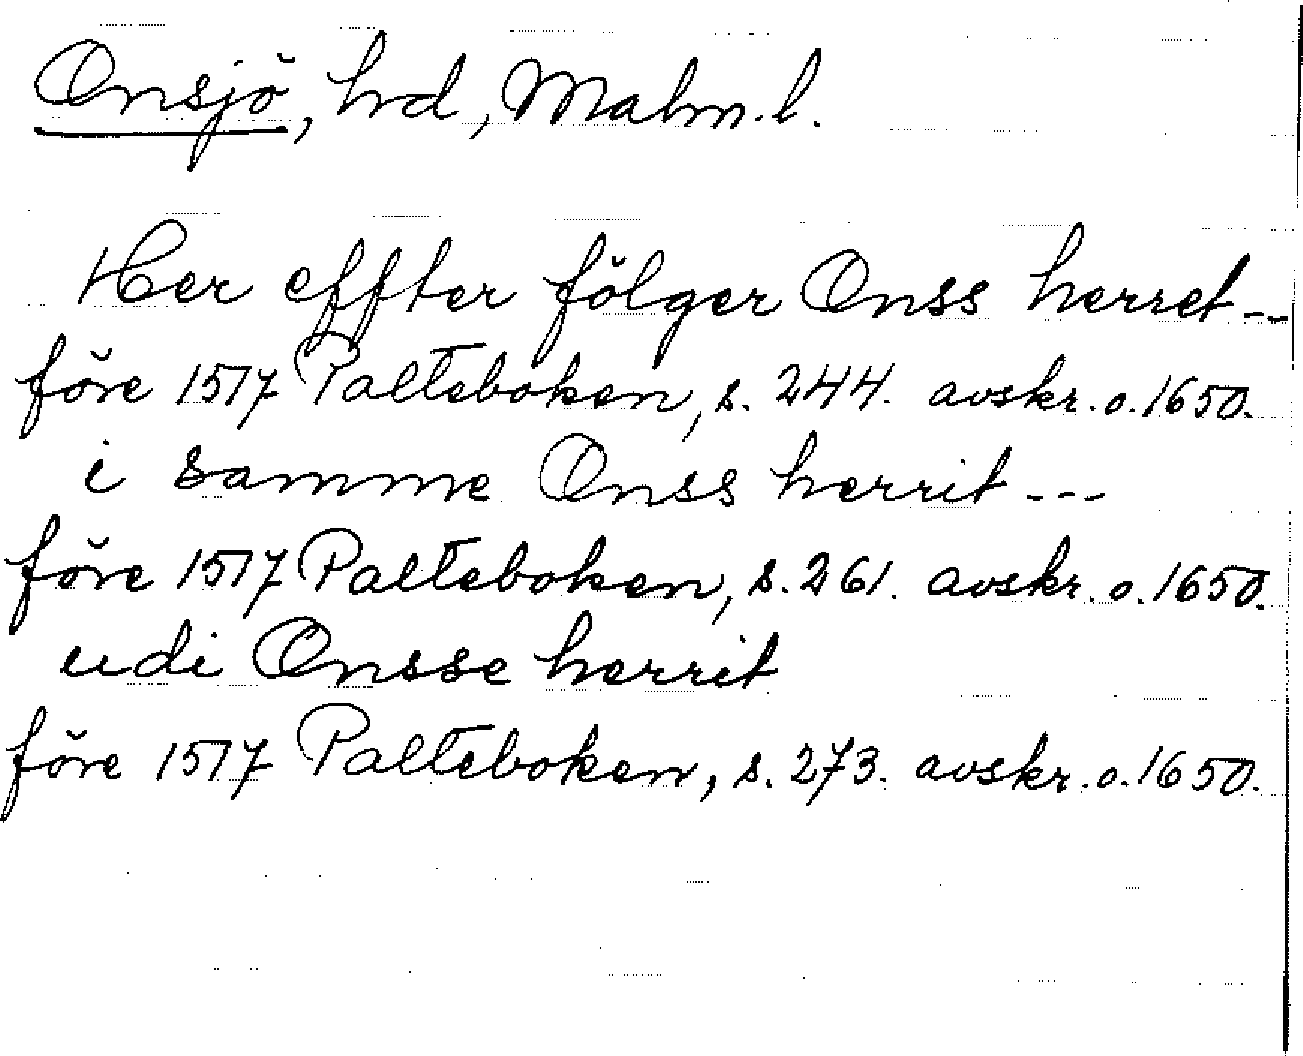 Onsjö, hrd, Malm.l.
Her effter fölger Onss herret---
före 1517 Palteboken, s. 244. avskr.o.1650.
i samme Onss herrit---
före 1517 Palteboken, s. 261. avskr.o.1650.
udi Onsse herrit
före 1517 Palteboken, s. 273. avskr.o.1650.